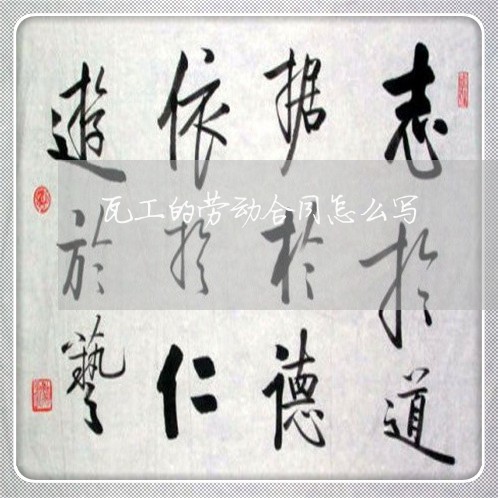 志於道
据於德
依於仁
遊於藝
瓦工的劳动合同怎么写